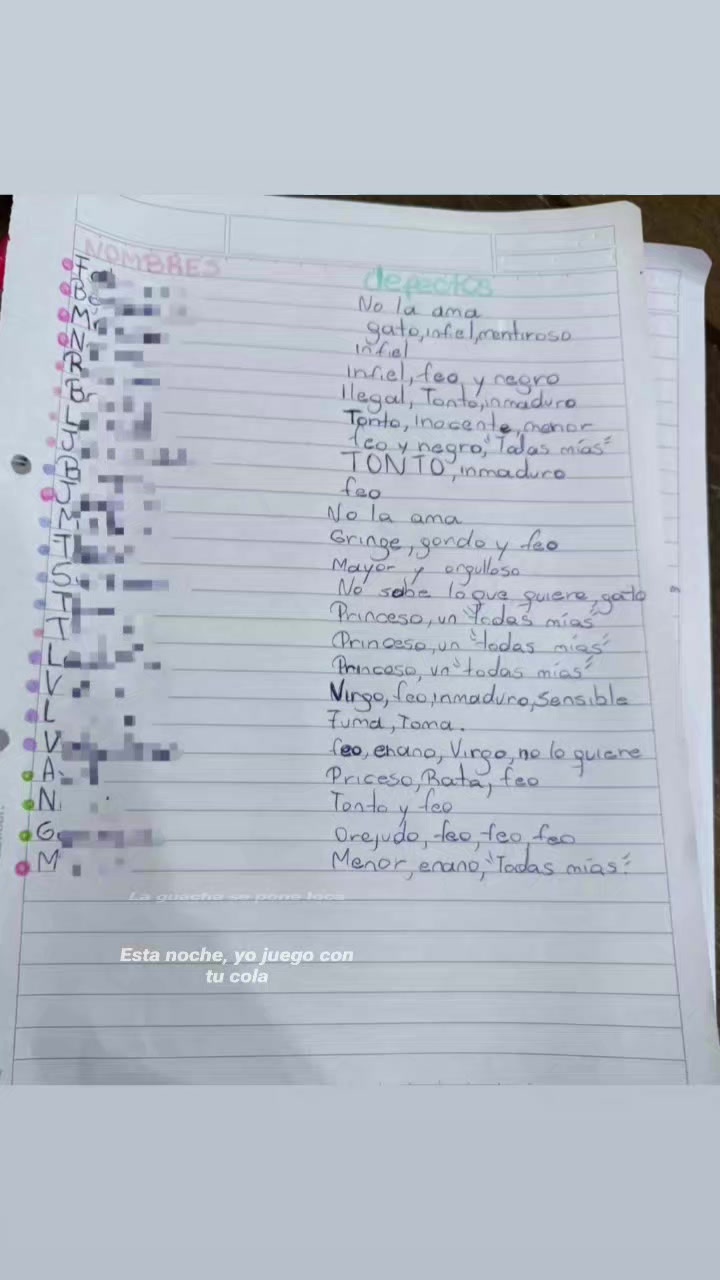 NOMBRES defectos
F No la ama
B gato, infiel, mentiroso
M infiel
N Infiel, feo, y negro
R Ilegal, Tonto, inmaduro
Br Tonto, Inocente, menor
L feo y negro, "Todas mías"
J TONTO, inmaduro
B feo
J No la ama
M Gringe, gordo y feo
T Mayor y orgulloso
S No sabe lo que quiere, gato
T Princeso, un "todas mías"
T Princeso, un "todas mías"
L Princeso, un "todas mías"
V Virgo, feo, inmaduro, Sensible
L Fuma, Toma.
V feo, enano, Virgo, no lo quiere
A Priceso, Bata, feo
N Tonto y feo
G Orejudo, feo, feo, feo
M Menor, enano, "Todas mías"
La guacha se pone loca
Esta noche, yo juego con
tu cola